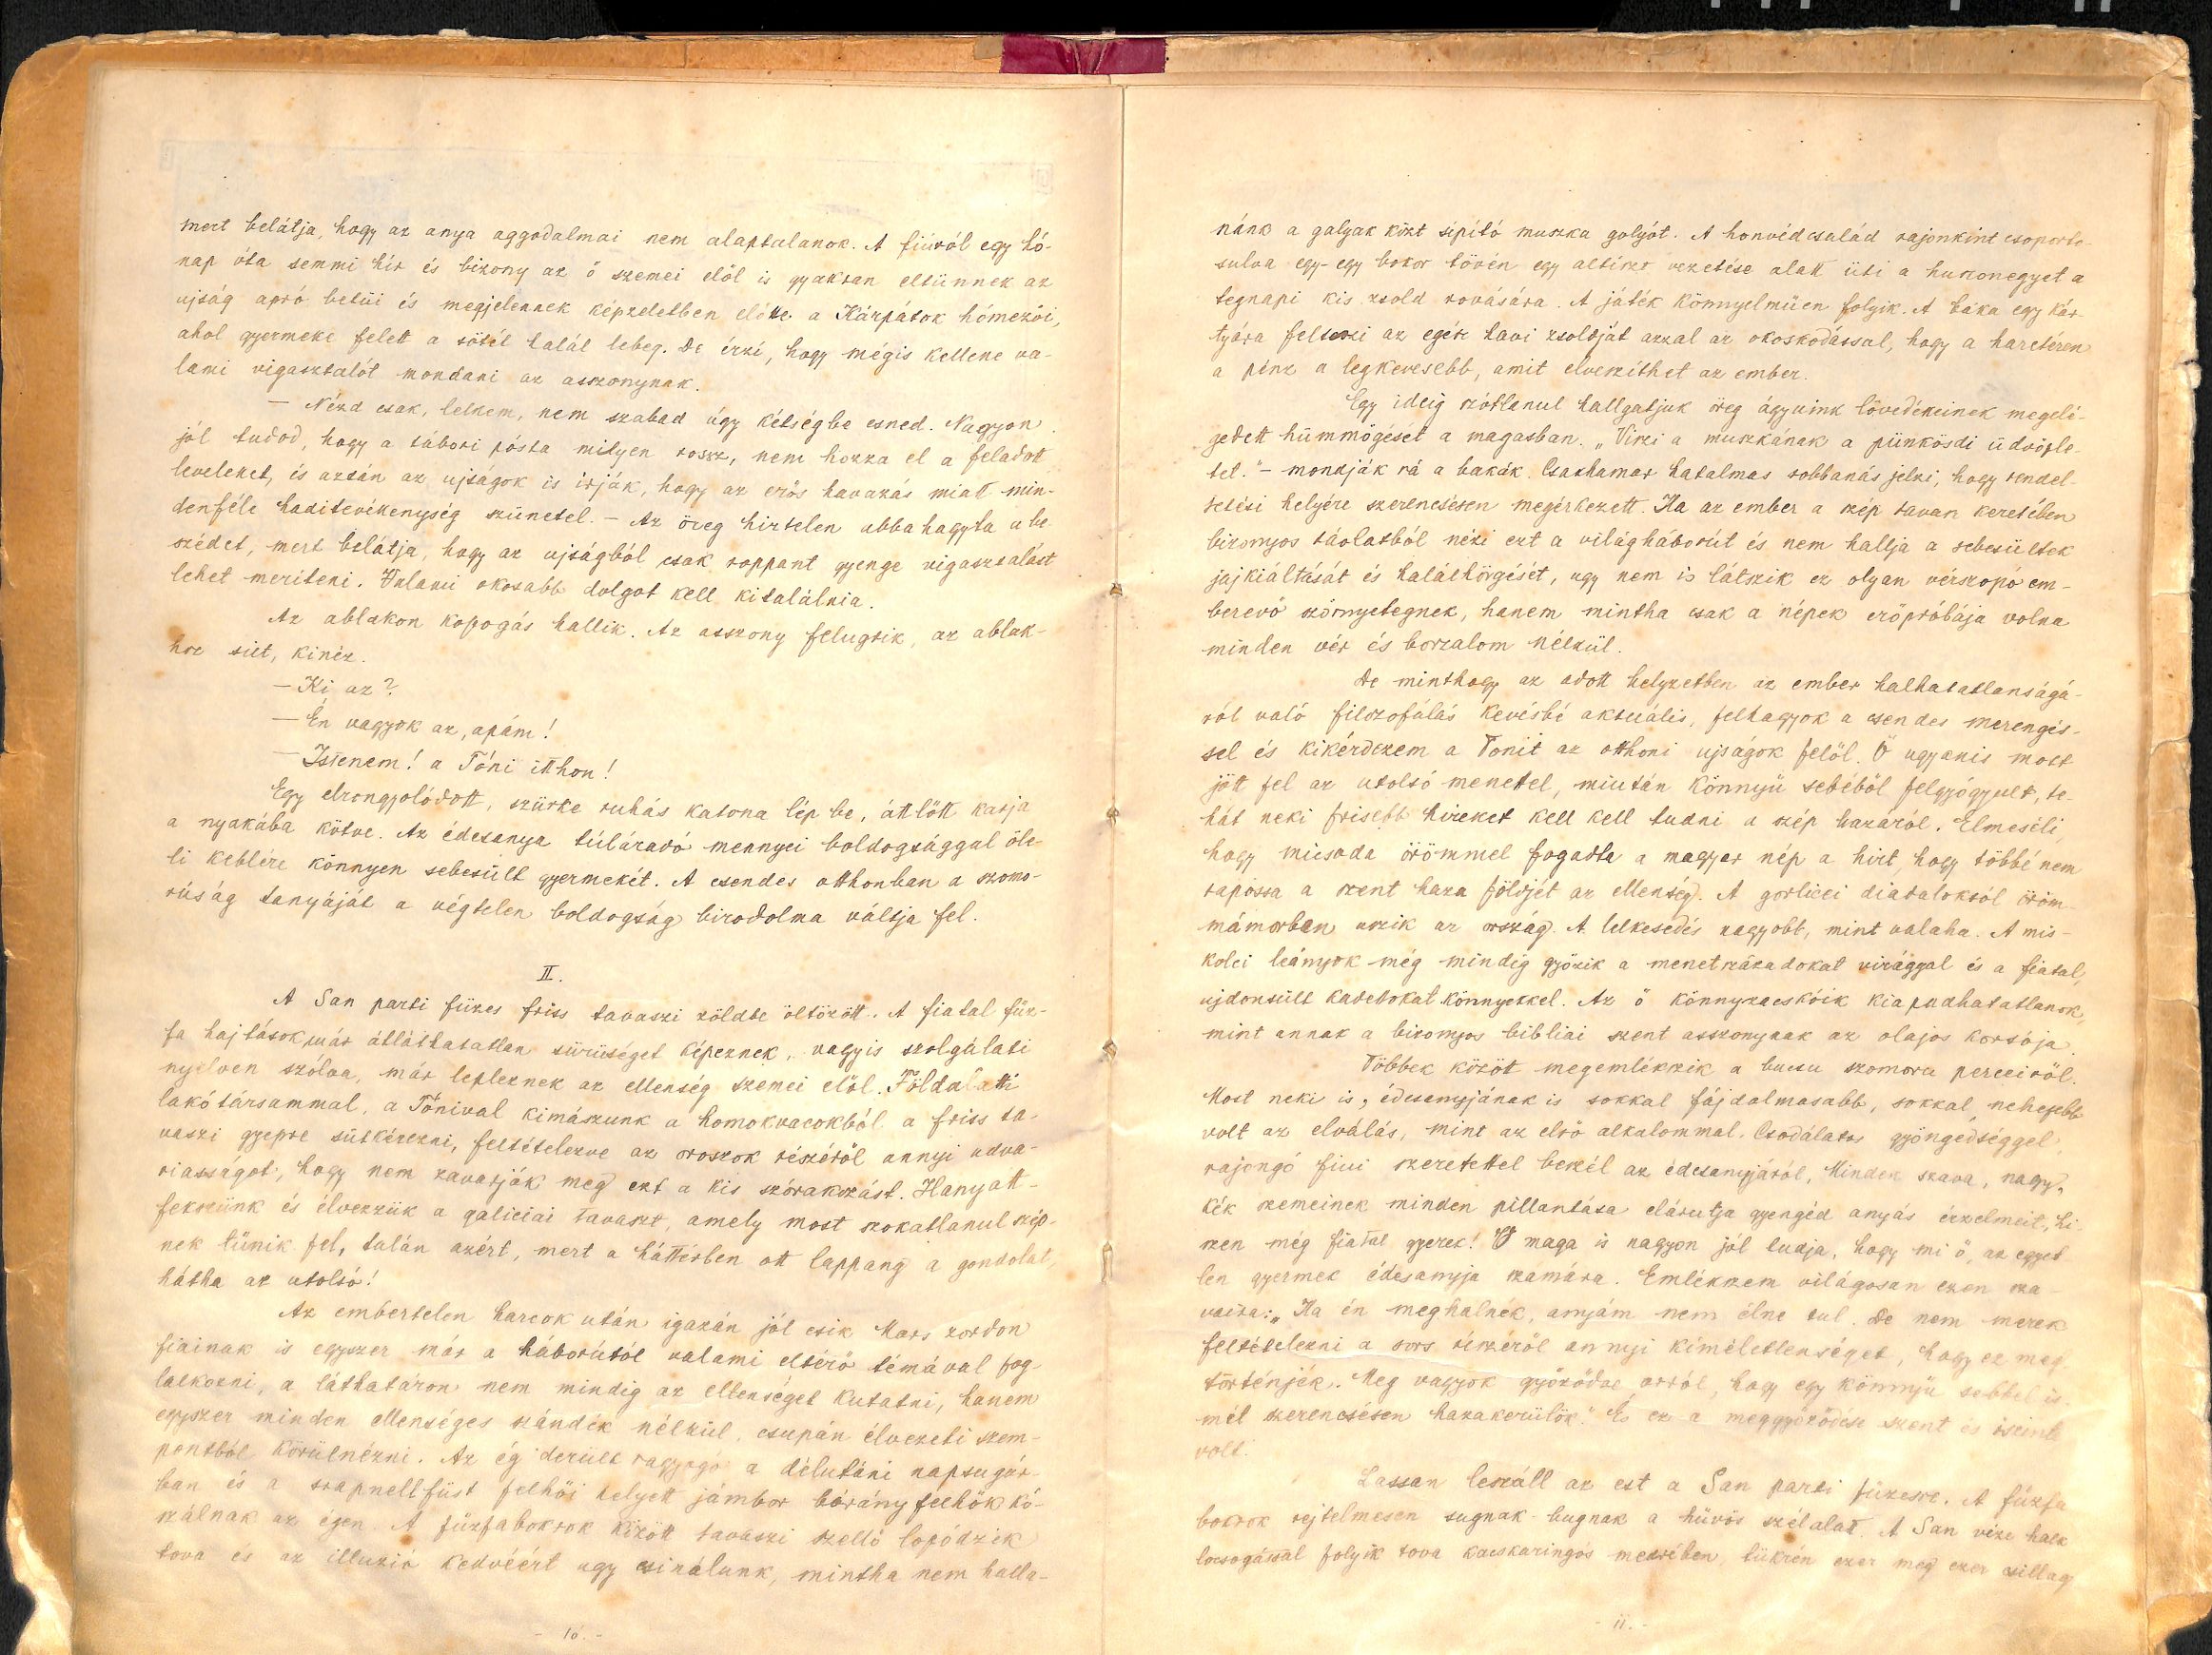 mert belátja, hogy az anya aggodalmai nem alaptalanok. A fiúról egy hó-
nap óta semmi hír és bizony az ő szemei elől is gyakran eltünnek az
ujság apró betüi és megjelennek képzeletben előtte a Kárpátok hómezői,
ahol gyermeke felett a sötét halál lebeg. De érzi, hogy mégis kellene va-
lami vigasztalót mondani az asszonynak.
— Nézd csak, lelkem, nem szabad úgy kétségbe esned. Nagyon
jól tudod, hogy a tábori pósta milyen rossz, nem hozza el a feladott
leveleket, és aztán az ujságok is irják, hogy az erős havazás miatt min-
denféle haditevékenység szünetel. — Az öreg hirtelen abba hagyta a be
szédet, mert belátja, hogy az ujságból csak roppant gyenge vigasztalást
lehet meríteni. Valami okosabb dolgot kell kitalálnia.
Az ablakon kopogás hallik. Az asszony felugrik, az ablak-
hoz siet, kinéz.
— Ki az?
— Én vagyok az, apám!
— Istenem! a Tóni itthon!
Egy elrongyolódott, szürke ruhás katona lép be, átlőtt karja
a nyakába kötve. Az édesanya túláradó mennyei boldogsággal öle-
li keblére könnyen sebesült gyermekét. A csendes otthonban a szomo-
rúság tanyáját a végtelen boldogság birodalma váltja fel.
II.
A San parti füzes friss tavaszi zöldbe öltözött. A fiatal füz-
fa hajtások már átláthatatlan sürüséget képeznek, vagyis szolgálati
nyelven szólva, már lepleznek az ellenség szemei elől. Földalatti
lakótársammal, a Tónival kimászunk a homokvacokból a friss ta-
vaszi gyepre sütkérezni, feltételezve az oroszok részéről annyi udva-
riasságot, hogy nem zavarják meg ezt a kis szórakozást. Hanyatt-
fekszünk és élvezzük a galiciai tavaszt, amely most szokatlanul szép-
nek tünik fel, talán azért, mert a háttérben ott lappang a gondolat,
hátha az utolsó!
Az embertelen harcok után igazán jól esik Mars zordon
fiainak is egyszer már a háborútól valami eltérő témával fog-
lalkozni, a láthatáron nem mindig az ellenséget kutatni, hanem
egyszer minden ellenséges szándék nélkül, csupán élvezeti szem-
pontból körülnézni. Az ég derült ragyogó a délutáni napsugár-
ban és a srapnellfüst felhői helyett jámbor bárányfelhők kó-
szálnak az égen. A füzfabokrok között tavaszi szellő lopódzik
tova és az illuzió kedvéért ugy csinálunk, mintha nem halla-
- 10. -
nánk a galyak közt sípító muszka golyót. A honvédcsalád rajonkint csoporto-
sulva egy-egy bokor tövén egy altiszt vezetése alatt üti a huszonegyet a
tegnapi kis zsold rovására. A játék könnyelmüen folyik. A baka egy kár-
tyára felteszi az egész havi zsoldját azzal az okoskodással, hogy a harctéren
a pénz a legkevesebb, amit elveszíthet az ember.
Egy ideig szótlanul hallgatjuk öreg ágyuink lövedékeinek megelé-
gedett hümmögését a magasban. „Viszi a muszkának a pünkösdi üdvözle-
tet." – mondják rá a bakák. Csakhamar hatalmas robbanás jelzi, hogy rendel-
tetési helyére szerencsésen megérkezett. Ha az ember a szép tavasz keretében
bizonyos távlatból nézi ezt a világháborút és nem hallja a sebesültek
jajkiáltását és halálhörgését, ugy nem is látszik ez olyan vérszopó em-
berevő szörnyetegnek, hanem mintha csak a népek erőpróbája volna
minden vér és borzalom nélkül.
De minthogy az adott helyzetben az ember halhatatlanságá-
ról való filozofálás kevésbé aktuális, felhagyok a csendes merengés-
sel és kikérdezem a Tonit az otthoni ujságok felől. Ő ugyanis most
jött fel az utolsó menettel, miután könnyü sebéből felgyógyult, te-
hát neki frisebb hireket kell kell tudni a szép hazáról. Elmeséli,
hogy micsoda örömmel fogadta a magyar nép a hirt, hogy többé nem
tapossa a szent haza földjét az ellenség. A gorlicei diadaloktól öröm-
mámorban uszik az ország. A lelkesedés nagyobb, mint valaha. A mis-
kolci leányok még mindig győzik a menetszázadokat virággal és a fiatal,
ujdonsült kadetokat könnyekkel. Az ő könnyzacskóik kiapadhatatlanok,
mint annak a bizonyos bibliai szent asszonynak az olajos korsója.
Többek közöt megemlékzik a bucsu szomoru perceiről.
Most neki is, édesanyjának is sokkal fájdalmasabb, sokkal nehezebb
volt az elválás, mint az első alkalommal. Csodálatos gyöngédséggel,
rajongó fiui szeretettel beszél az édesanyjáról, Minden szava, nagy,
kék szemeinek minden pillantása elárulja gyengéd anyás érzelmeit, hi-
szen még fiatal gyerek! Ő maga is nagyon jól tudja, hogy mi ő, az egyet-
len gyermek édesanyja számára. Emlékszem világosan ezen sza-
vaira: „Ha én meghalnék, anyám nem élne tul. De nem merek
feltételezni a sors részéről annyi kíméletlenséget, hogy ez meg
történjék. Meg vagyok győződve arról, hogy egy könnyü sebbel is-
mét szerencsésen hazakerülök." És ez a meggyőződése szent és őszinte
volt.
Lassan leszáll az est a San parti füzesre. A füzfa
bokrok rejtelmesen sugnak-bugnak a hüvös szél alatt. A San vize halk
locsogással folyik tova kacskaringós medrében, tükrén ezer meg ezer csillag
- 11. -